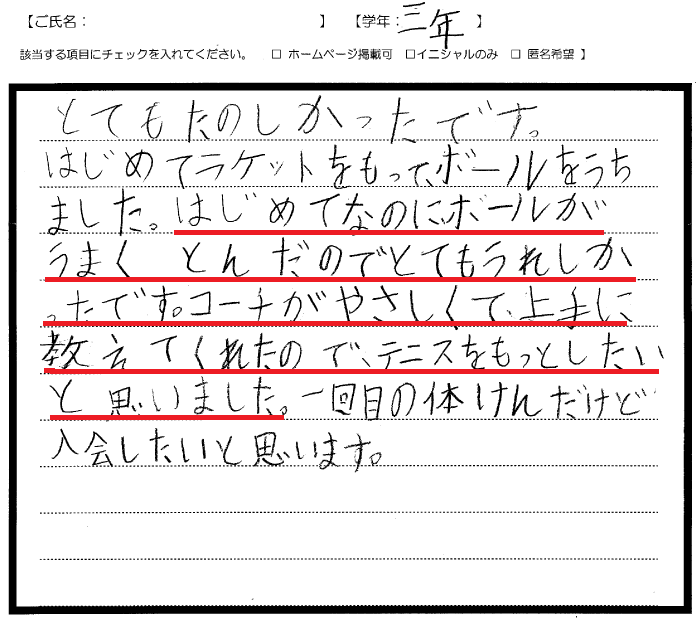 【ご氏名： 】 【学年：三年 】
該当する項目にチェックを入れてください。 □ ホームページ掲載可 □イニシャルのみ □ 匿名希望 】
とてもたのしかったです。
はじめてラケットをもって、ボールをうち
ました。はじめてなのにボールが
うまく とんだのでとてもうれしか
ったです。コーチがやさしくて、上手に
教えてくれたので、テニスをもっとしたい
と思いました。一回目の体けんだけど
入会したいと思います。